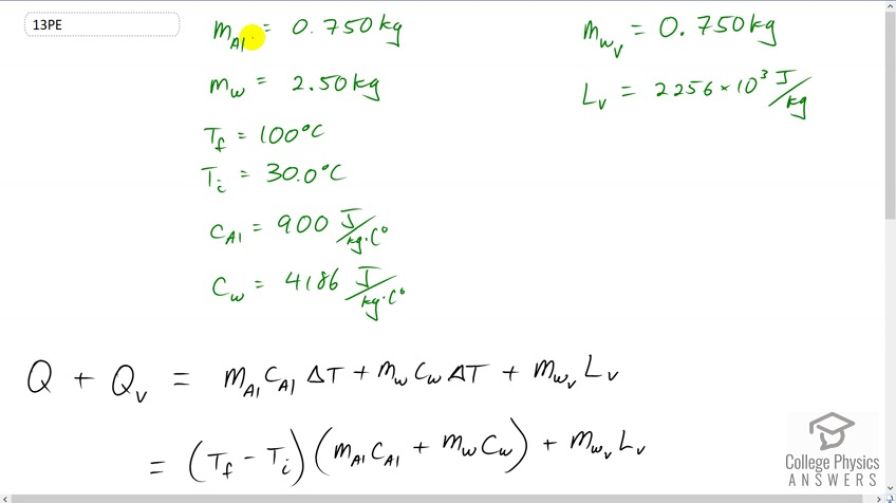 13PE
m_Al = 0.750 kg
m_w = 2.50 kg
T_f = 100°C
T_i = 30.0°C
C_Al = 900 J/kg·C°
C_w = 4186 J/kg·C°
m_wv = 0.750 kg
L_v = 2256 × 10³ J/kg
Q + Q_v = m_Al C_Al ΔT + m_w C_w ΔT + m_wv L_v
= (T_f − T_i)(m_Al C_Al + m_w C_w) + m_wv L_v
College Physics
ANSWERS